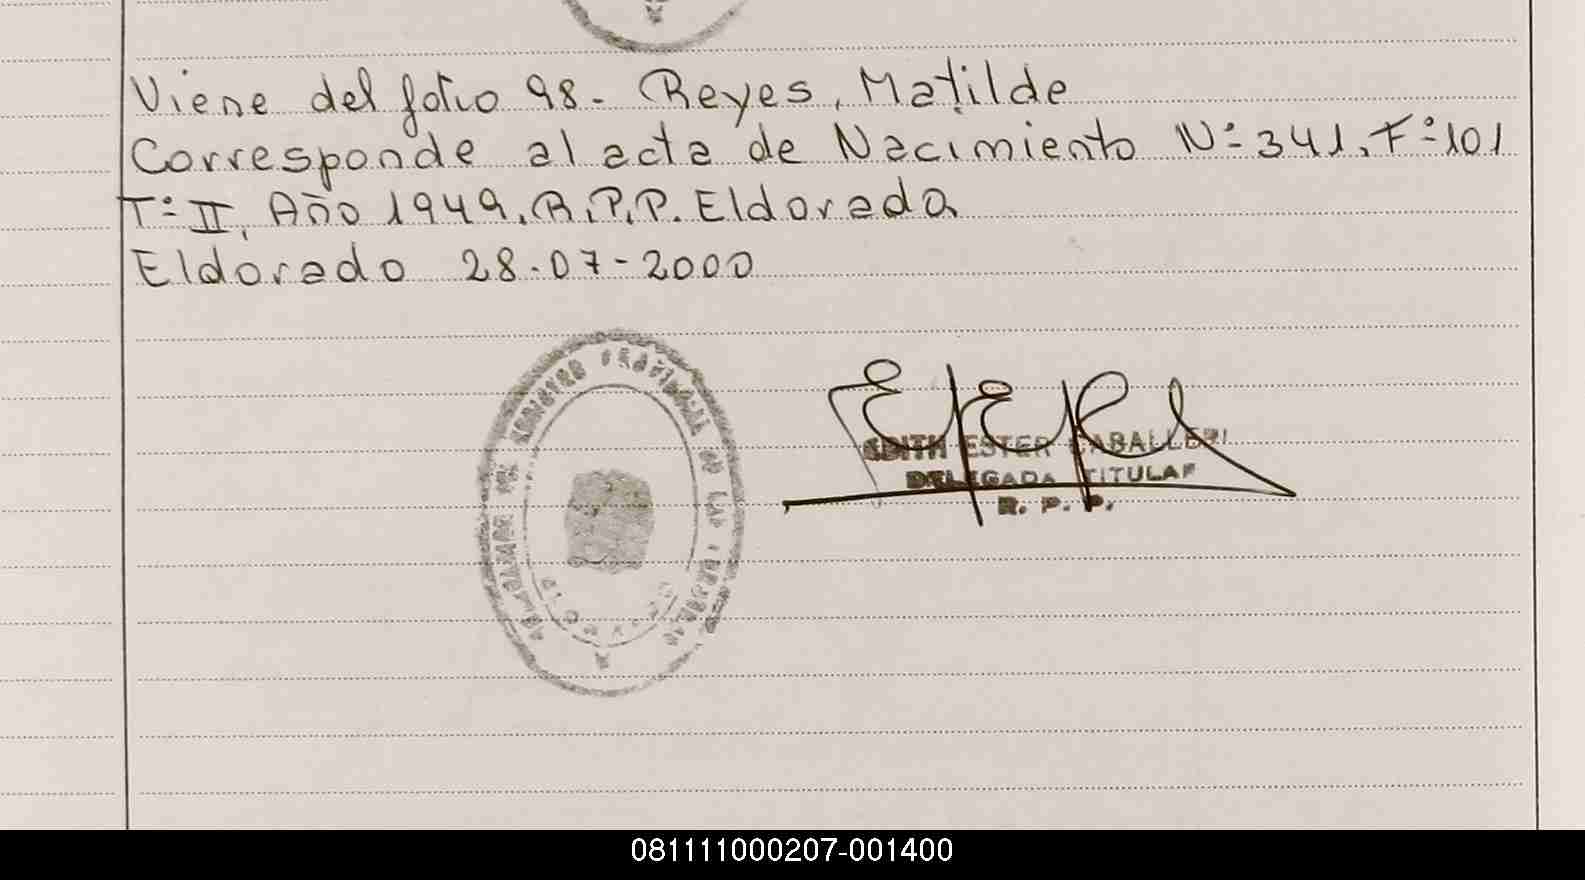 Viene del folio 98- Reyes, Matilde
Corresponde al acta de Nacimiento N:341, F:101
T:II, Año 1949, R.P.P. Eldorado
Eldorado 28-07-2000
EDITH ESTER CABALLERI
DELEGADA TITULAR
R. P. P.
081111000207-001400